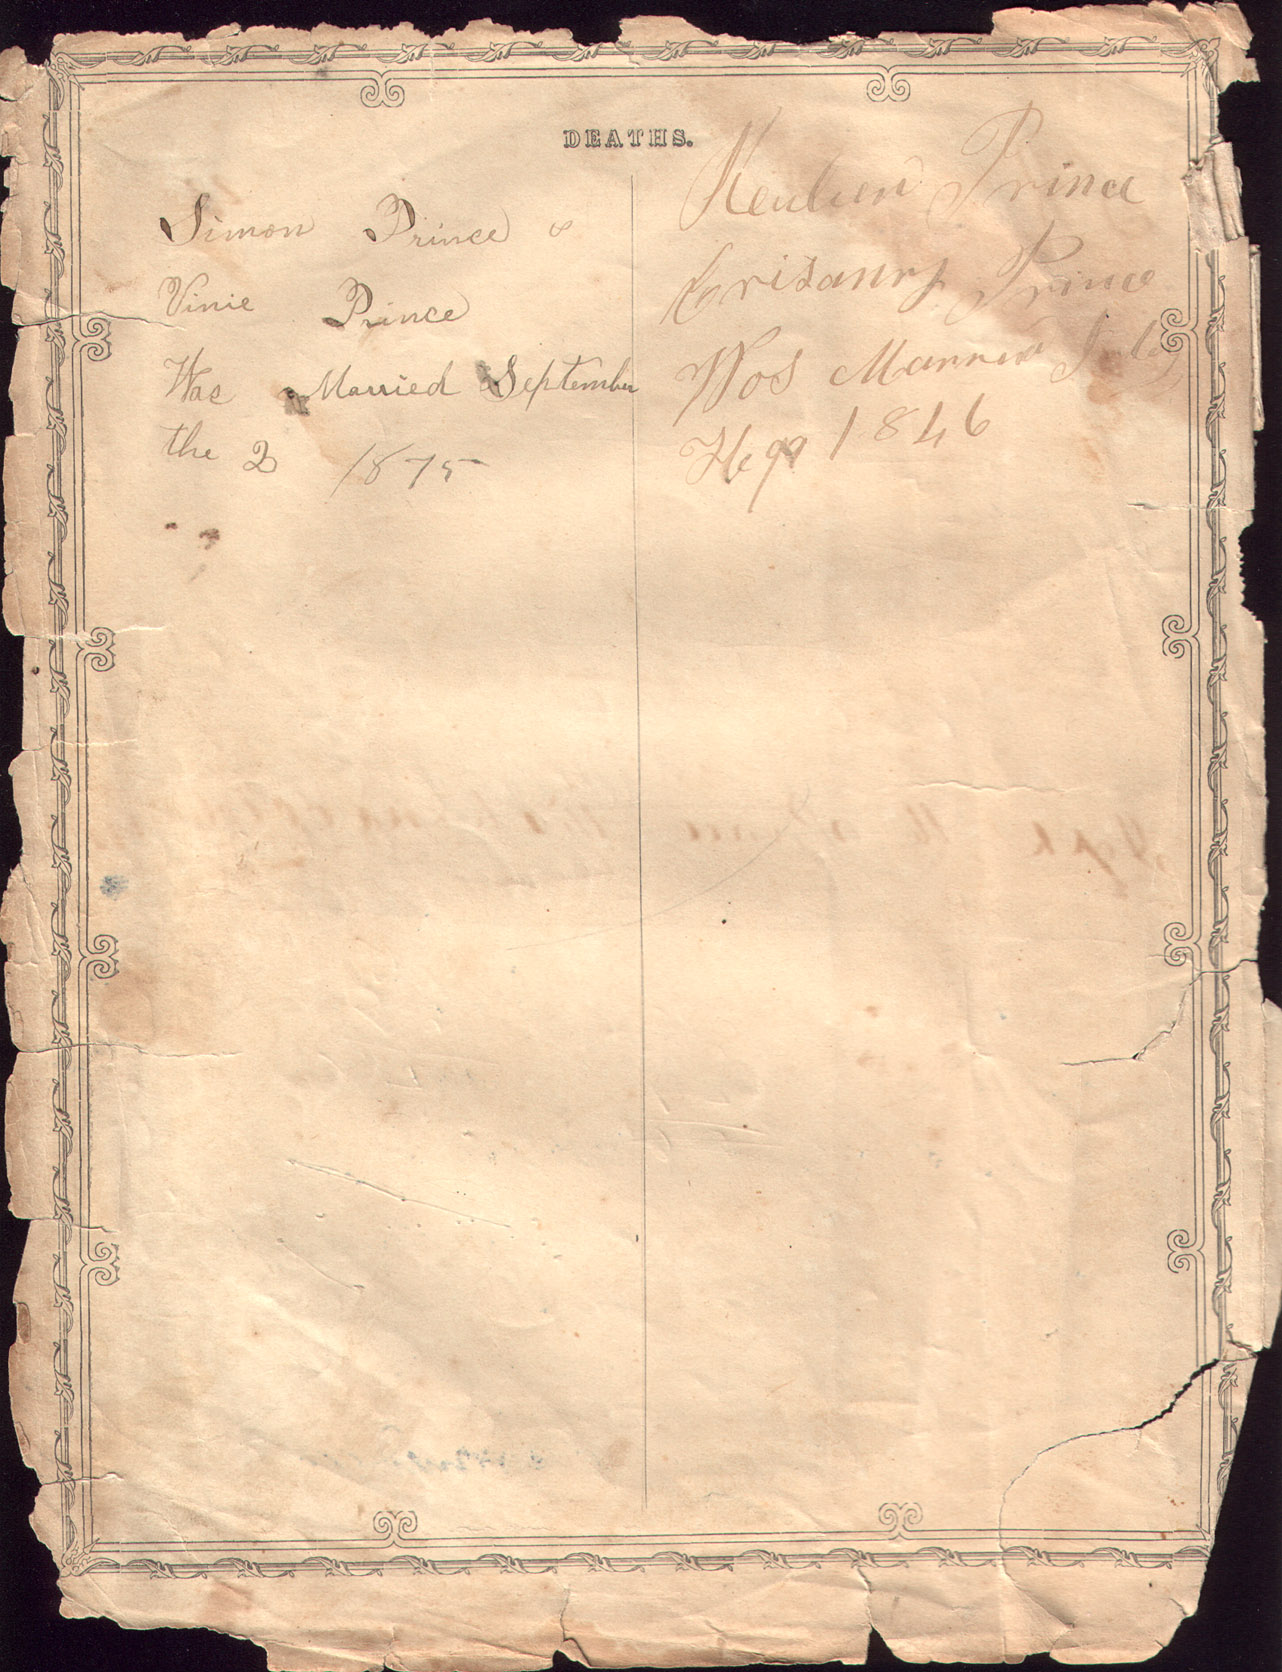 DEATHS.
Simon Prince &
Vinie Prince
Was Married September
the 2 1875
Reuben Prince
Prince
Wos Married July
the 1846